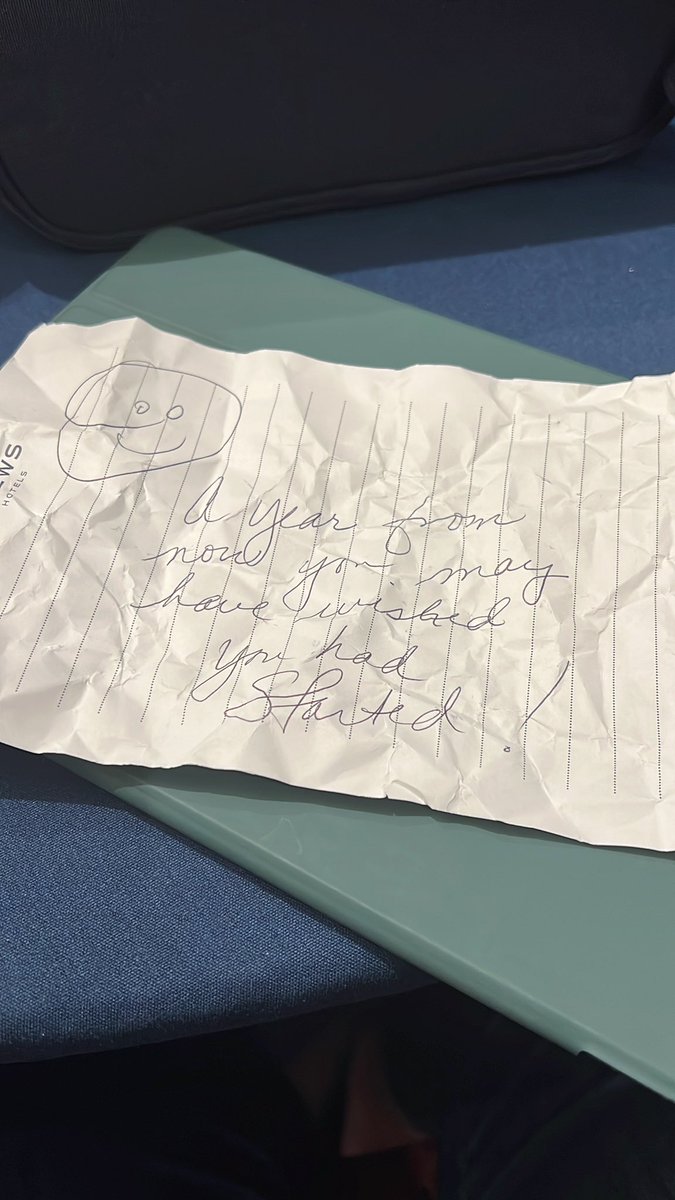 EWS
HOTELS
A year from
now you may
have wished
you had
Started!